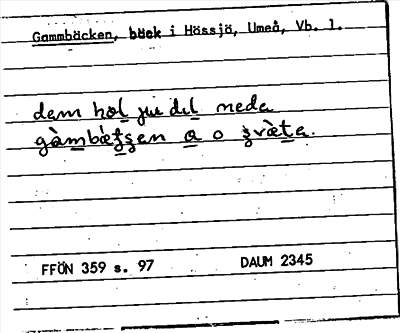 Gammbäcken, bäck i Hössjö, Umeå, Vb. l.
dem hol jui dil mede
gàmbètsen a o
FFÖN 359 s. 97
DAUM 2345